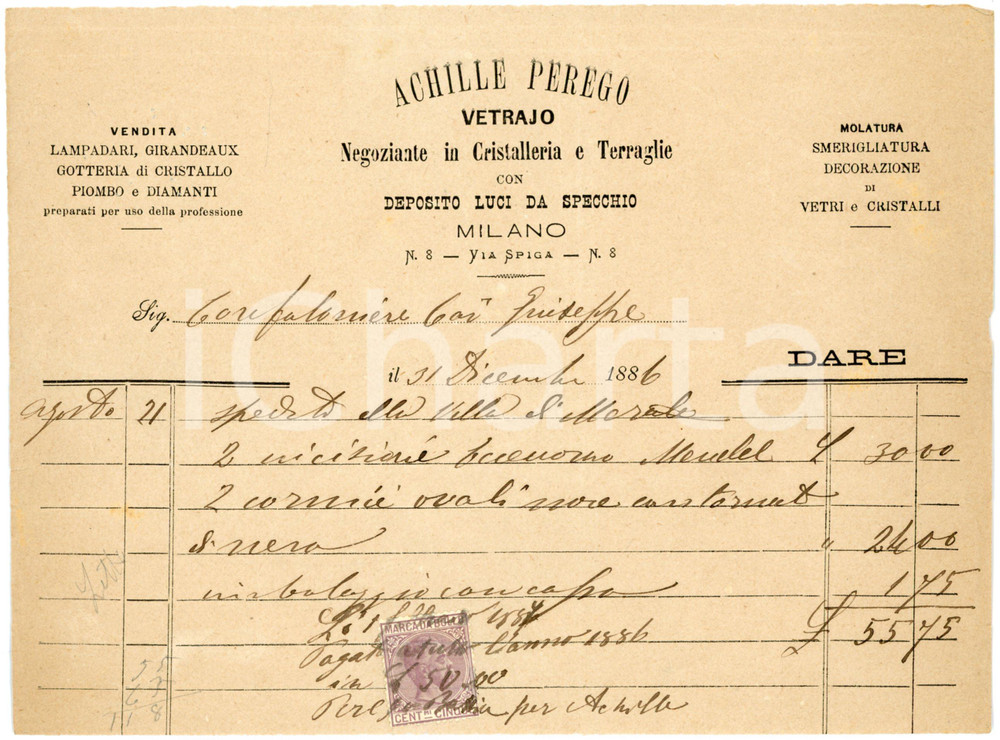 ACHILLE PEREGO
VETRAJO
Negoziante in Cristalleria e Terraglie
CON
DEPOSITO LUCI DA SPECCHIO
MILANO
N. 8 — VIA SPIGA — N. 8
VENDITA
LAMPADARI, GIRANDEAUX
GOTTERIA di CRISTALLO
PIOMBO e DIAMANTI
preparati per uso della professione
MOLATURA
SMERIGLIATURA
DECORAZIONE
DI
VETRI e CRISTALLI
Sig. Confaloniere Cav Giuseppe
il 31 Dicembre 1886
DARE
Agosto 21 spedito alla Villa di
2 incisioni £ 30 00
2 cornici ovali noce contornat
di nero " 24 00
imbalaggio con cassa 1 75
£ 55 75
1887
Pagato a tutto l'anno 1886
in £ 50.00
per Achille
MARCA DA BOLLO
CENT.MI CINQUE
iCharta